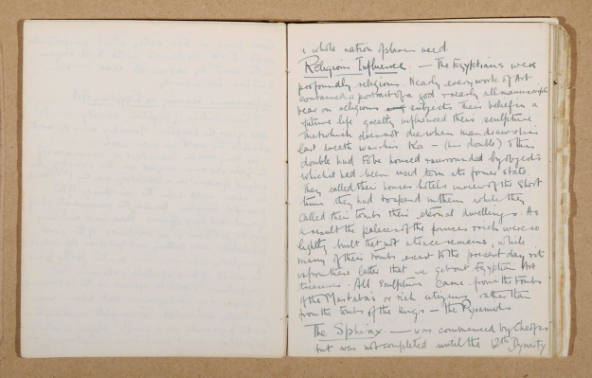 a whole nation of slaves used
Religious Influence. — The Egyptians were
profoundly religious. Nearly every work of Art
contained a portrait of a god & nearly all manuscripts
bear on religious subjects. Their belief in a
future life greatly influenced their sculpture
that which does not die when man draws his
last breath was his Ka — (his double) & this
double had to be housed & surrounded by objects
which it had been used to in its former state
They called their houses hotels in view of the short
time they had to spend in them while they
called their tombs their eternal dwellings. As
a result the palaces of the princes & rich were so
lightly built that not a trace remains, while
many of their tombs exist to the present day & it
is from these latter that we get our Egyptian Art
treasures. All sculpture came from the tombs
of the Mastabas or rich citizens rather than
from the tombs of the kings — the Pyramids
The Sphinx — was commenced by Cheops
but was not completed until the 12th Dynasty